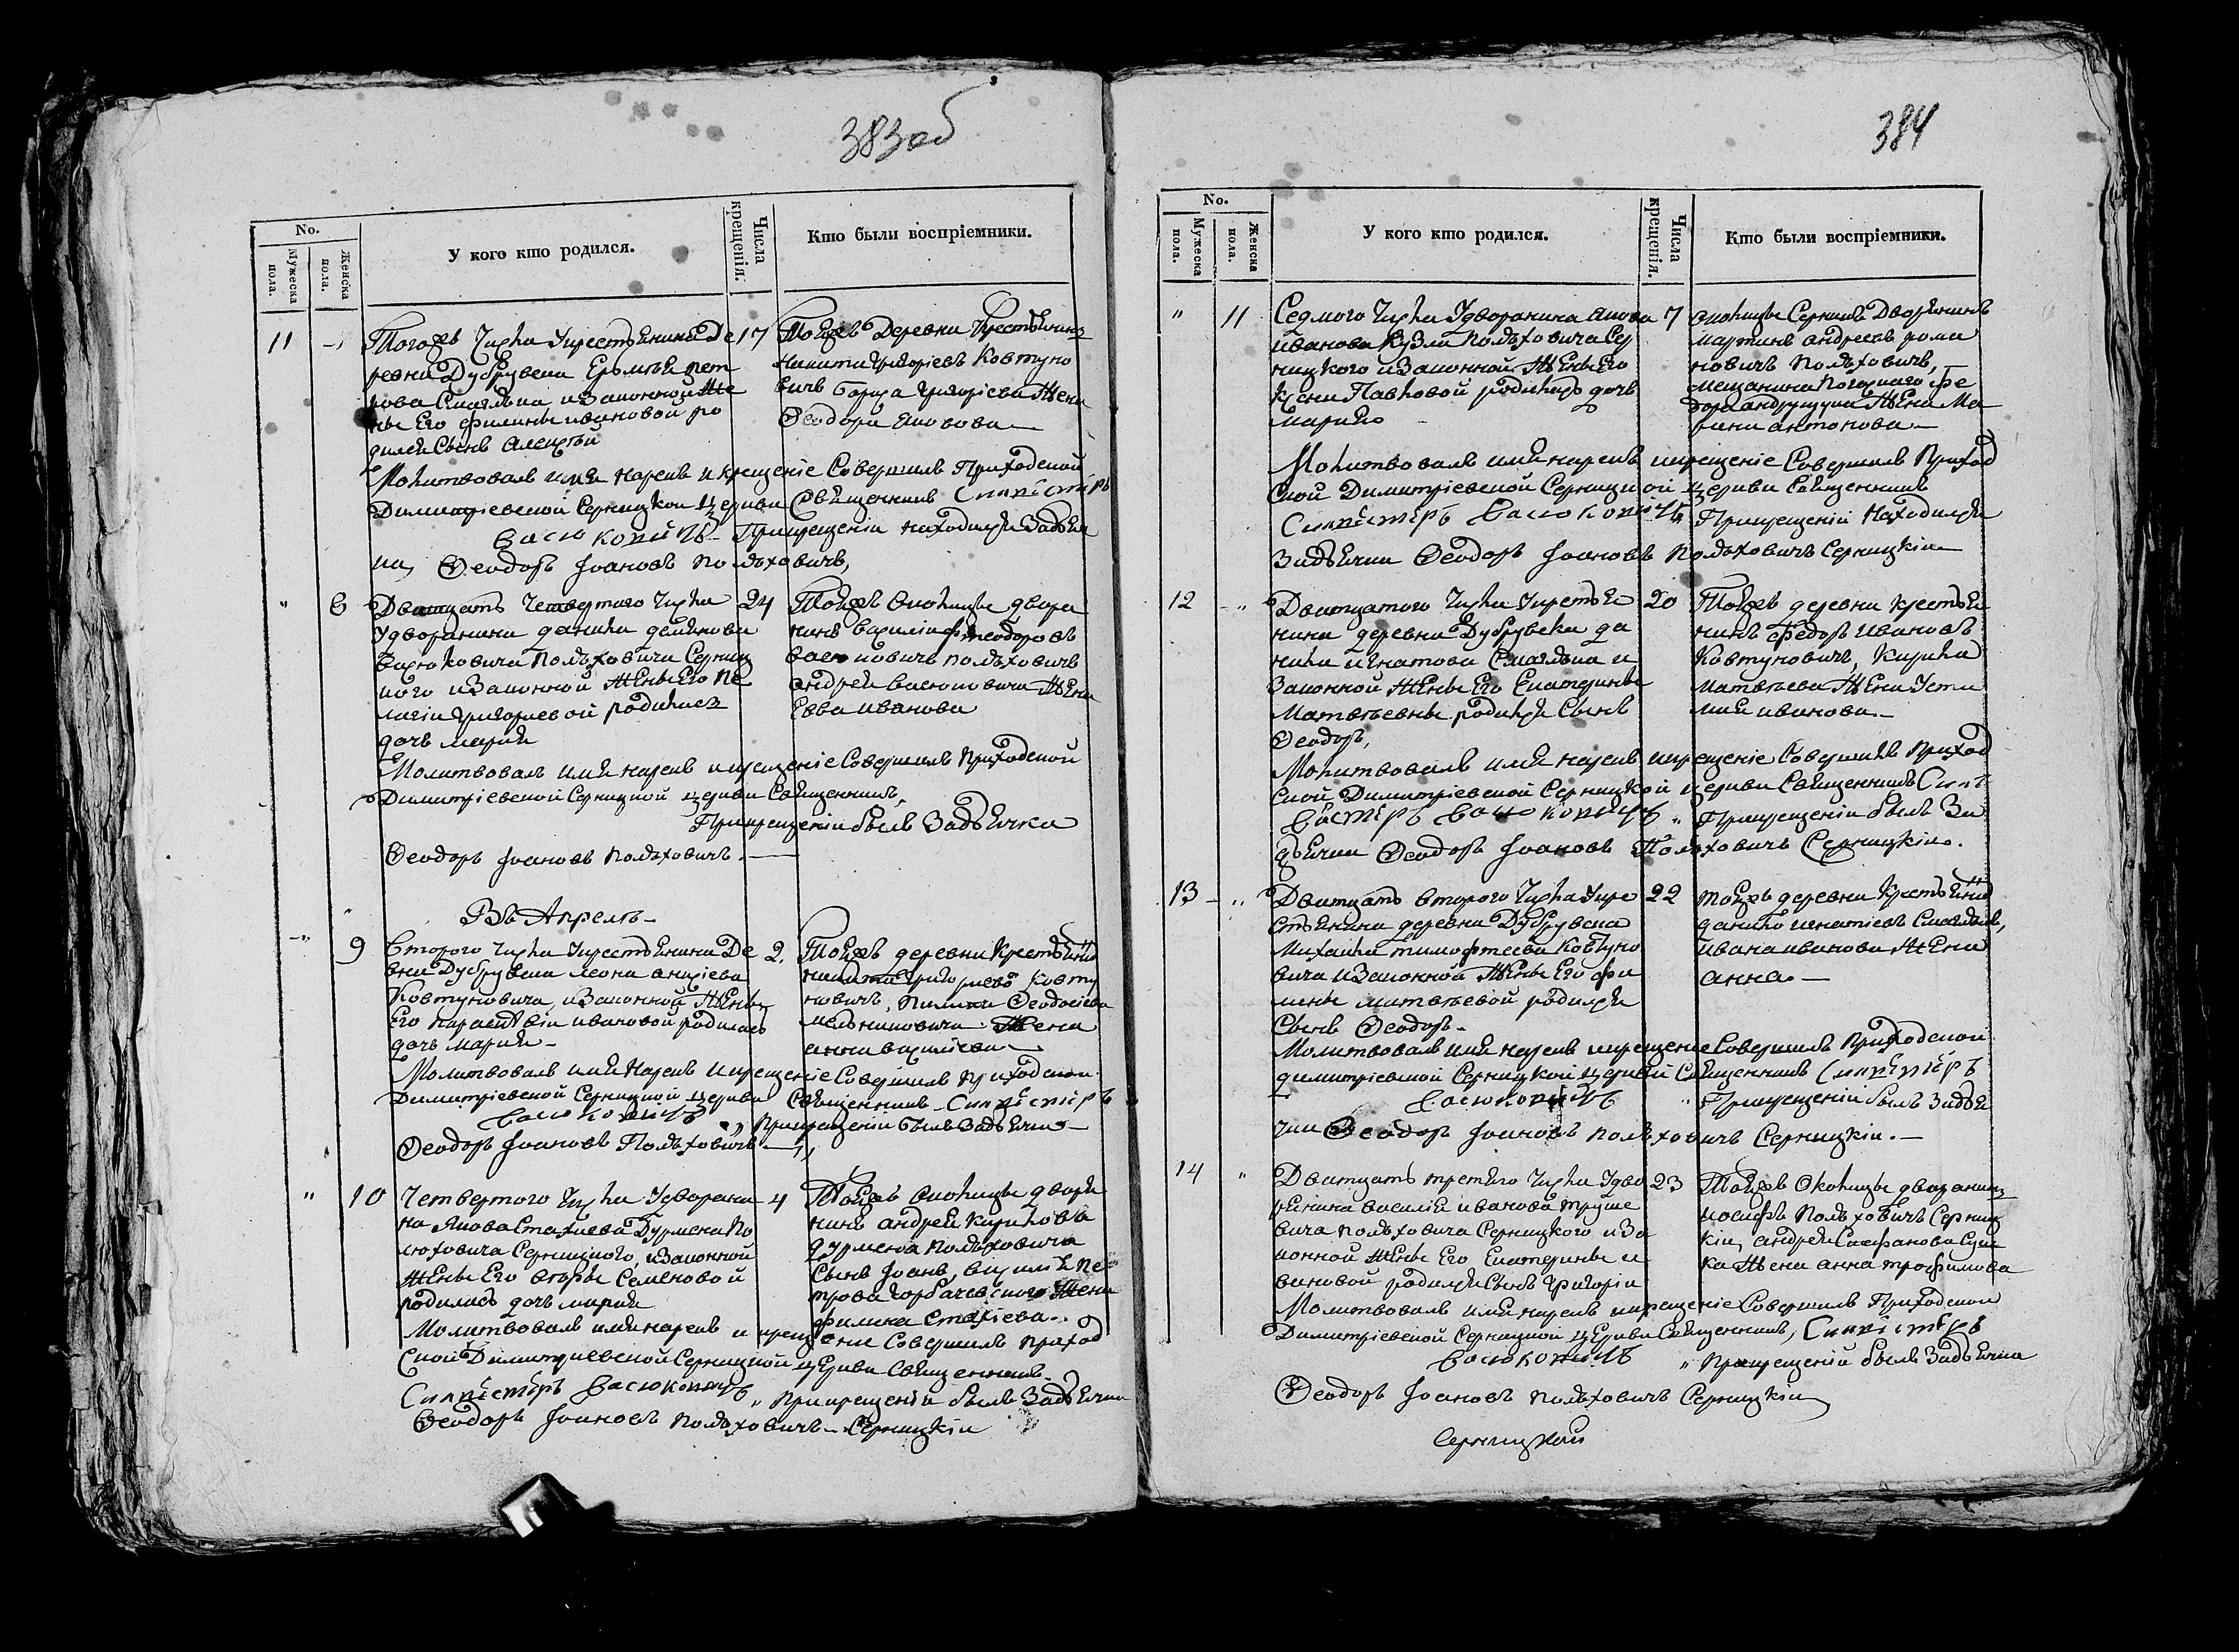 383об
No.
Мужеска пола.
Женска пола.
У кого кто родился.
Числа крещенія.
Кто были воспріемники.
11 Тогожъ Числа Укрестьянина Де
ревни Дубрувска Еромѣя пет
рова и законной Же
ны Его филины ивановой ро
дился Сынъ Алексѣй
17
Тоижъ Деревни Крестьянинъ
Никита Григоріевъ Ковтуно
вичъ Григоріева Жена
Ѳеодора
Молитвовалъ имя нарекъ и крещеніе Совершилъ Приходской
Димитріевской Серницкой Церкви Священникъ Силвестеръ
Васюковичъ При крещеніи находился Задьяч
ка Ѳеодоръ Іоановъ Полѣховичъ,
" 8 Дватцать Четвертого Числа
Удворанина данила
Васюковича Полѣховича Серниц
кого и Законной Жены Его Пе
лагіи Григориевой родилась
дочь Марія
24
Тойжъ Околицы дворя
нинъ Василій Ѳеодоровъ
Васюковичъ полѣховичъ
андрея Васюковича Жена
Евва Иванова
Молитвовалъ имя нарекъ и крещеніе Совершилъ приходской
Димитріевской Серницкой церкви Священникъ,
При крещеніи былъ Задьячка
Ѳеодоръ Іоановъ полѣховичъ.
Въ Апрелѣ
" 9 Второго Числа Укрестьянина Де
вни Дубрувска леона
Ковтуновича, и Законной Жены
Его параскевіи ивановой родилась
дочь Марія
2.
Тойжъ деревни Крестьянинъ
никита Григорiевъ Ковту
новичъ, Ѳеодосіева
мельниковича Жена
анна василіева
Молитвовалъ имя Нарекъ и крещеніе Совершилъ приходской
Димитріевской Серницкой церкви Священникъ Силвестеръ
Васюковичъ " При крещеніи былъ Задьячка
Ѳеодоръ Іоановъ Полѣховичъ
" 10 Четвертого Числа Удворани
на Якова Стахиева Дурмена По
люховича Серницкого, и Законной
Жены Его Семеновой
родилась дочь марія
4
Тойжъ Околицы дворя
нина андрея Кирилова
дурмена полѣховича
Сынъ Іоанъ, василія пе
трова Горбачевского Жена
филина Стахіева.
Молитвовалъ имя нарекъ и крещеніе Совершилъ приход
ской Димитриевской Серницкой церкви Священникъ
Силвестеръ Васюковичъ " При крещеніи былъ Задьячка
Ѳеодоръ Іоановъ полѣховичъ Серницкіи
384
No.
Мужеска пола.
Женска пола.
У кого кто родился.
Числа крещенія.
Кто были воспріемники.
" 11 Седмого Числа Удворанина
иванова Кузми полѣховича Сер
ницкого и Законной Жены Его
Павловой родилась дочь
Марія
7
околицы Серникъ Дворянинъ
мартинъ андреевъ рома
новичъ полѣховичъ,
мещанина Погосного Фе
дора андрущука Жена Ма
рина антонова
Молитвовалъ имя нарекъ и крещеніе Совершилъ Приход
ской Димитріевской Серницкой церкви Священникъ
Силвестеръ Васюковичъ При крещеніи Находился
Задьячка Ѳеодоръ Іоановъ полѣховичъ Серницкіи
12 " Дватцатого Числа Укрестья
нина деревни Дубрувска да
нила игнатова и
Законной Жены Его Екатерины
Матвѣевны родился Сынъ
Ѳеодоръ,
20
Тойжъ деревни крестья
нинъ Федоръ Ивановъ
Ковтуновичъ, Кирила
матвѣева Жена Усти
мия иванова.
Молитвовалъ имя нарекъ и крещеніе Совершилъ приход
ской Димитріевской Серницкой церкви Священникъ Силь
вестеръ Васюковичъ " При крещеніи былъ За
дьячка Ѳеодоръ Іоановъ Полѣховичъ Серницкіи.
13 " Дватцать второго Числа Укре
стьянина деревни Дубрувска
Михаила тимофтеева Ковтуно
вича и Законной Жены Его фи
лины матвѣевой родился
Сынъ Ѳеодоръ
22
тойжъ деревни Крестьянинъ
данило игнатіевъ
ивана иванова Жена
анна.
Молитвовалъ имя нарекъ и крещеніе Совершилъ приходской
димитріевской Серницкой церкви Священникъ Силвестеръ
Васюковичъ " При крещеніи былъ Задья
чка Ѳеодоръ Іоановъ полѣховичъ Серницкіи.
14 " Дватцать третяго Числа Удво
ренина василія иванова
вича полѣховича Серницкого и За
конной Жены Его Екатерины
родился Сынъ Григоріи
23
Тойжъ Околицы дворанинъ
иосифъ Полѣховичъ Серниц
кіи, андрея Стефанова
Жена анна трофимова
Молитвовалъ имя нарекъ и крещеніе Совершилъ Приходской
Димитріевской Серницкой Церкви Священникъ, Силвестеръ
Васюковичъ " При крещеніи былъ Задьячка
Ѳеодоръ Іоановъ полѣховичъ Серницкіи
Серницкой